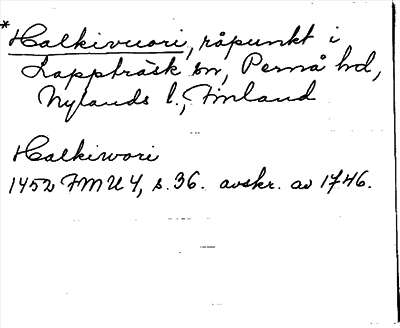 *Halkivuori, råpunkt i
Lappträsk sn, Pernå hd,
Nylands l., Finland
Halkiwori
1452 FMU 4, s. 36. avskr. av 1746.